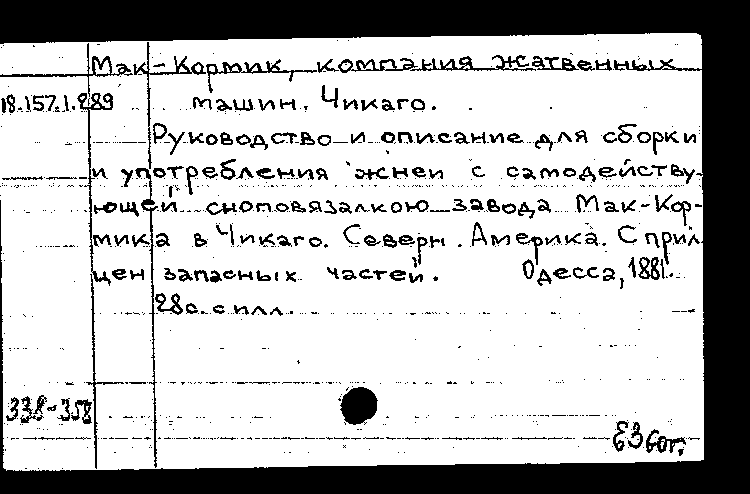 Мак-Кормик, компания жатвенных
18.157.1.289 машин. Чикаго.
Руководство и описание для сборки
и употребления жнеи с самодейству-
ющей сноповязалкою завода Мак-Кор-
мика в Чикаго. Северн. Америка. С прил.
цен запасных частей. Одесса, 1881.
28 с. с илл.
338-358